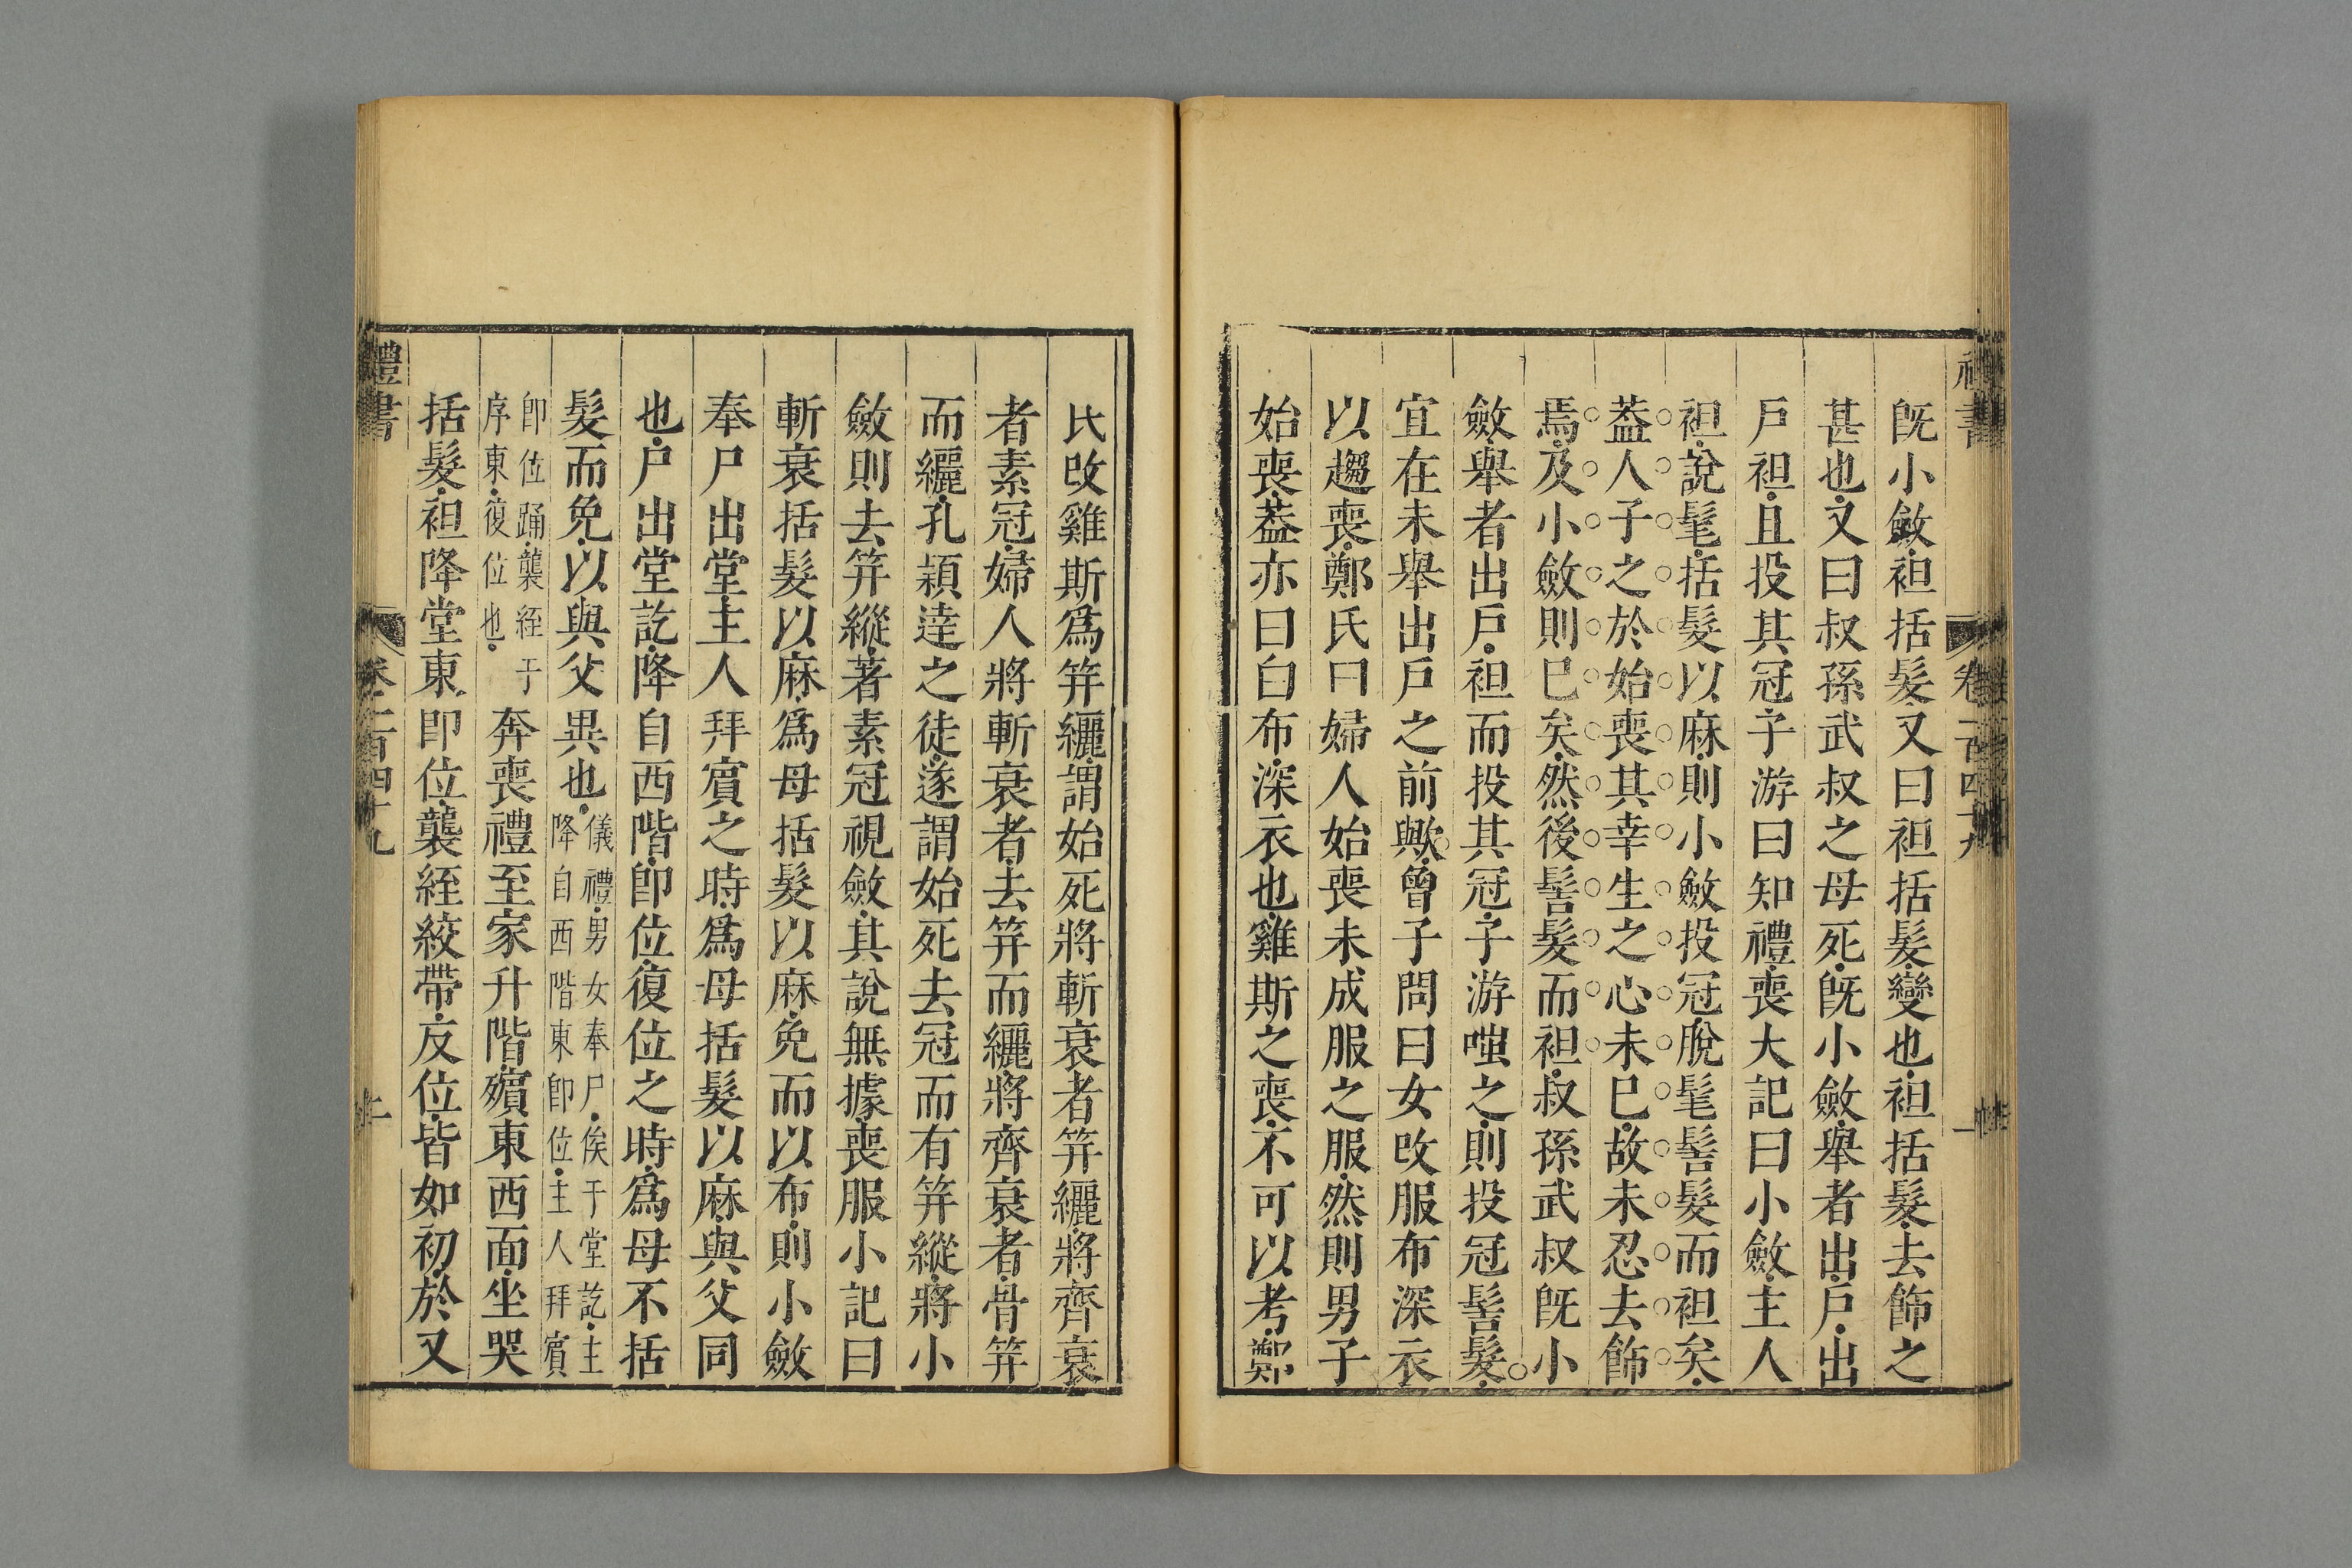 禮書 卷一百四十九 一
旣小斂袒括髮又曰袒括髮變也袒括髮去飾之
甚也又曰叔孫武叔之母死旣小斂舉者出戶出
戶袒且投其冠子游曰知禮喪大記曰小斂主人
袒說髦括髮以麻則小斂投冠脫髦髻髮而袒矣
葢人子之於始喪其幸生之心未已故未忍去飾
焉及小斂則已矣然後髻髮而袒叔孫武叔旣小
斂舉者出戶袒而投其冠子游嗤之則投冠髻髮
宜在未舉出戶之前歟曾子問曰女改服布深衣
以趨喪鄭氏曰婦人始喪未成服之服然則男子
始喪葢亦曰白布深衣也雞斯之喪不可以考鄭
氏改雞斯爲笄纚謂始死將斬衰者笄纚將齊衰
者素冠婦人將斬衰者去笄而纚將齊衰者骨笄
而纚孔穎達之徒遂謂始死去冠而有笄縰將小
斂則去笄縰著素冠視斂其說無據喪服小記曰
斬衰括髮以麻爲母括髮以麻免而以布則小斂
奉尸出堂主人拜賔之時爲母括髮以麻與父同
也户出堂訖降自西階卽位復位之時爲母不括
髮而免以與父異也儀禮男女奉尸俟于堂訖主
降自西階東卽位主人拜賔
卽位踊襲絰于
序東復位也奔喪禮至家升階殯東西面坐哭
括髮袒降堂東卽位襲絰絞帶反位皆如初於又
禮書 卷一百四十九